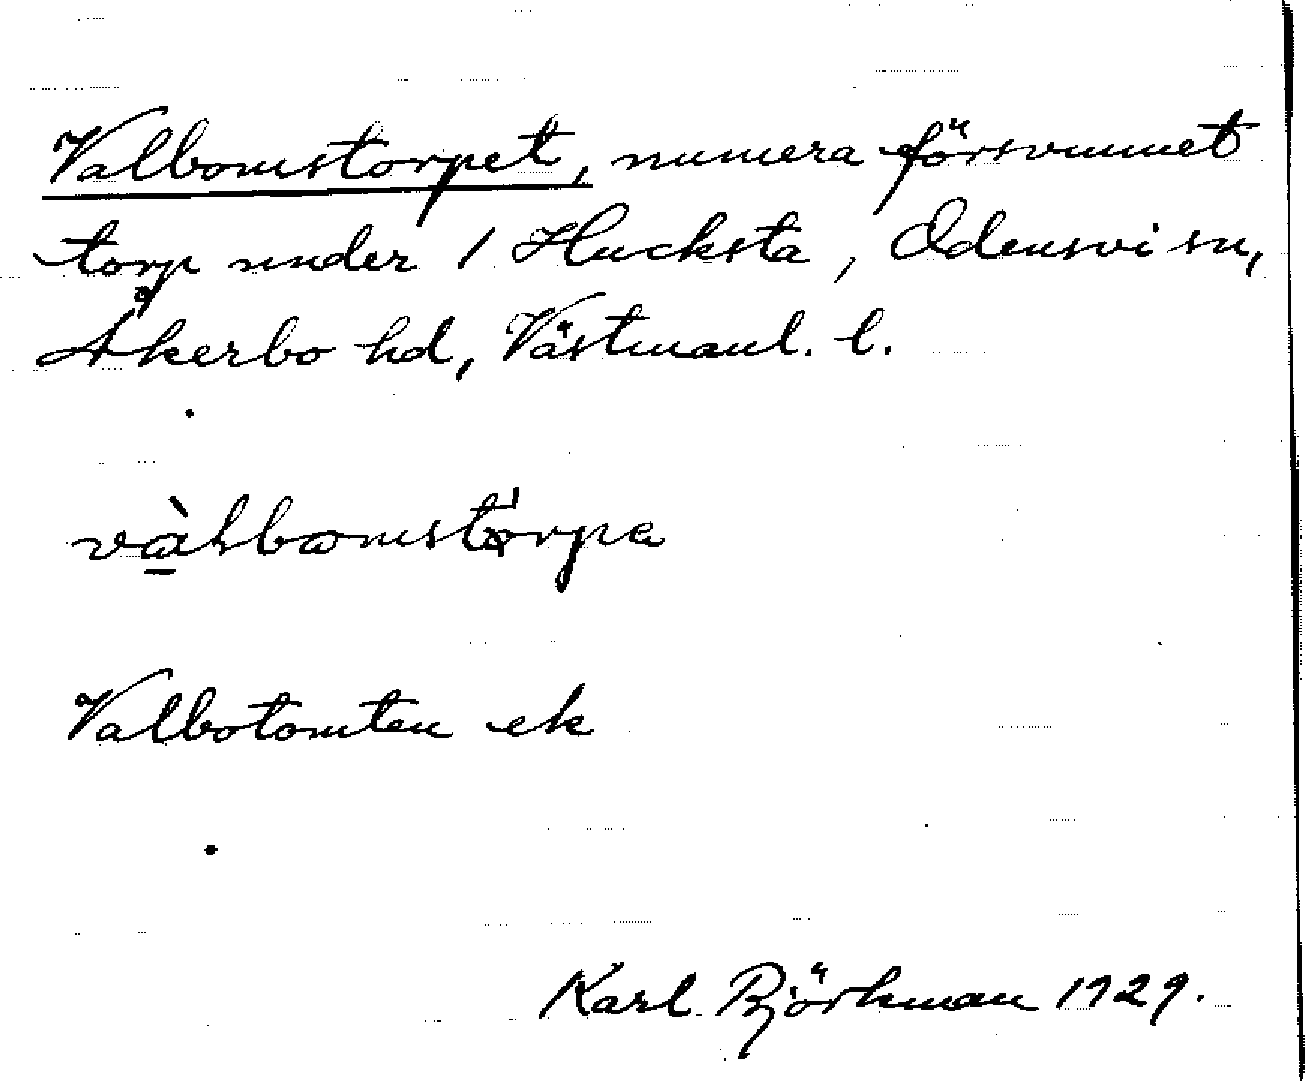 Valbomstorpet, numera försvunnet
torp under 1 Hucksta, Odensvi sn,
Åkerbo hd, Västmanl. l.
Valbotomten ek
Karl Björkman 1929.